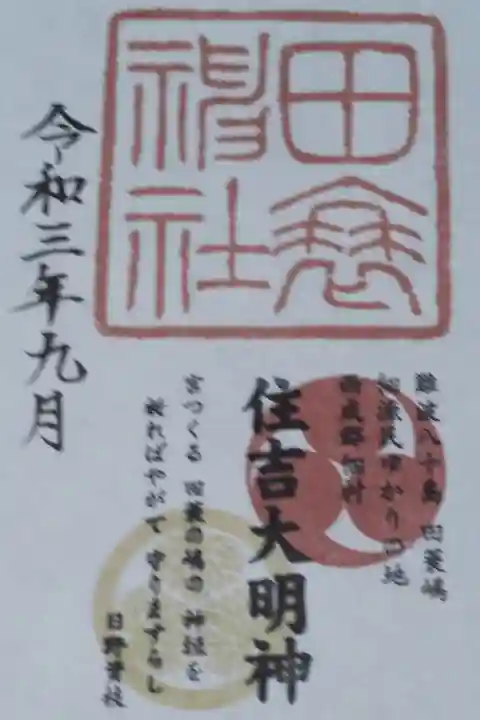 田蓑
神社
難波八十島 田蓑嶋
佃漁民ゆかりの地
西成郡佃村
住吉大明神
宮つくる 田蓑の嶋の 神垣を
祈ればやがて 守りますらし
令和三年九月